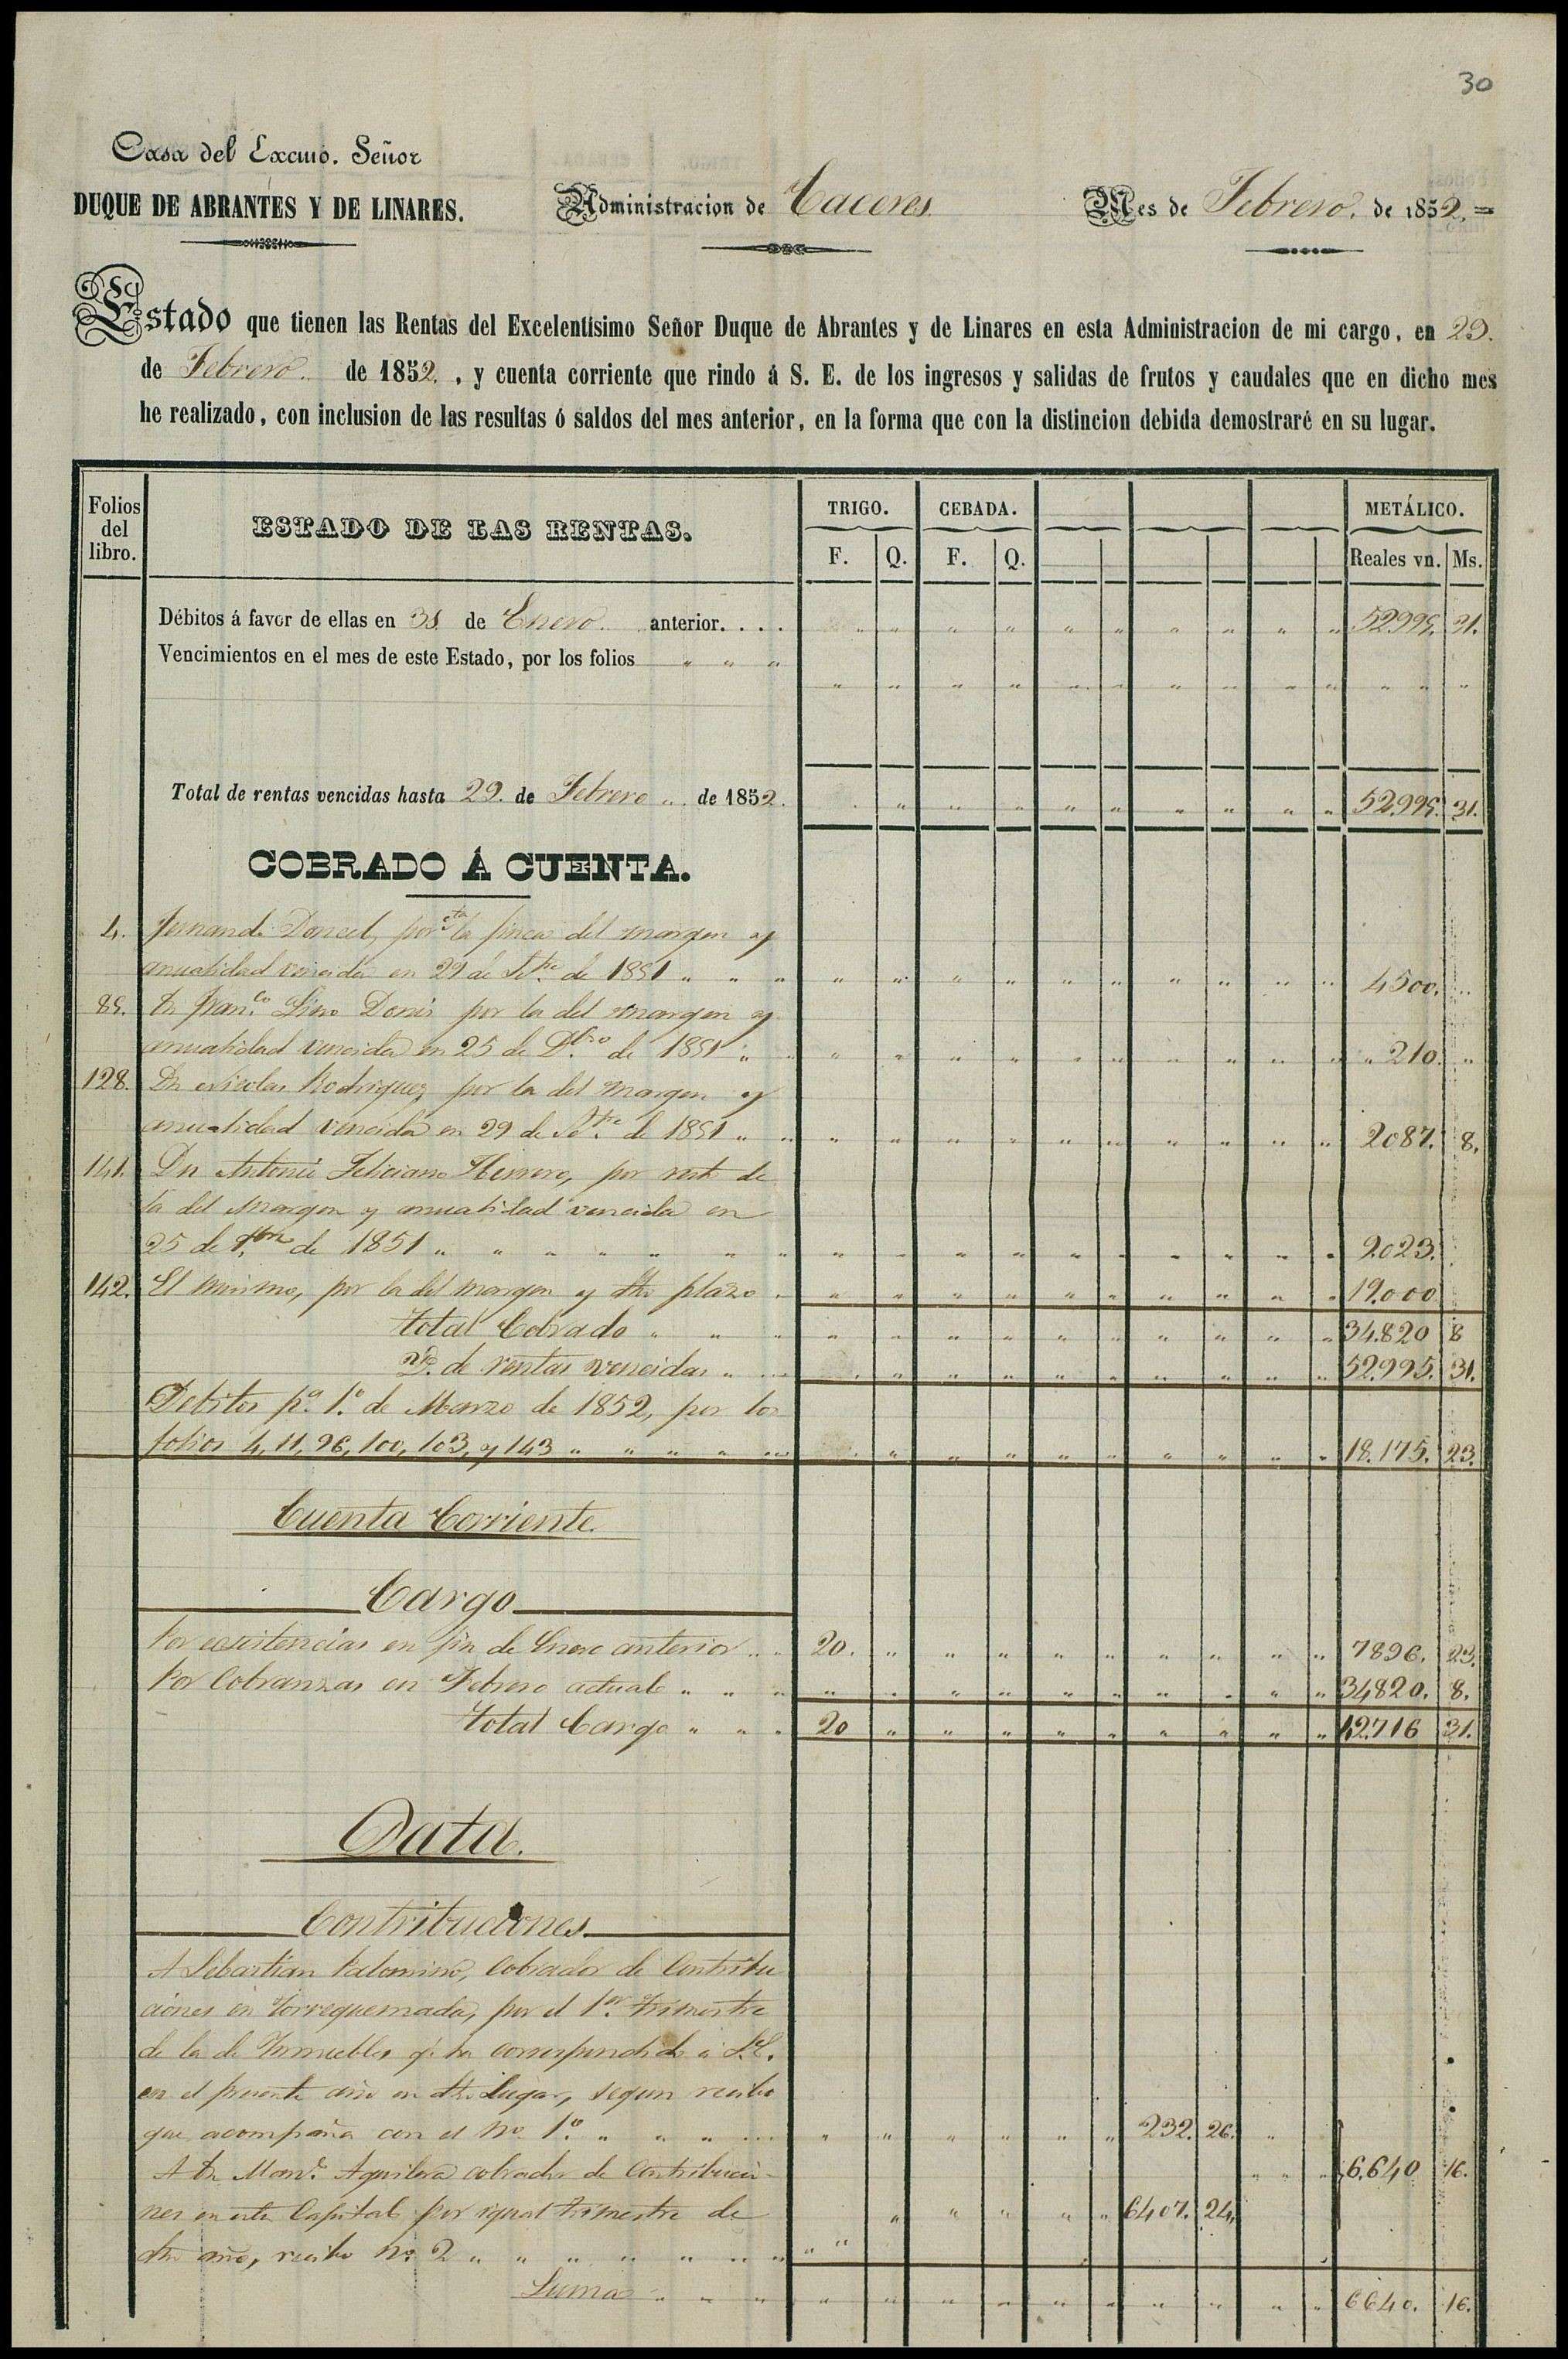 30
Casa del Excmo. Señor
DUQUE DE ABRANTES Y DE LINARES.
Administracion de Caceres
Mes de Febrero. de 1852. =
Estado que tienen las Rentas del Excelentísimo Señor Duque de Abrantes y de Linares en esta Administracion de mi cargo, en 29.
de Febrero. de 1852. , y cuenta corriente que rindo á S. E. de los ingresos y salidas de frutos y caudales que en dicho mes
he realizado, con inclusion de las resultas ó saldos del mes anterior, en la forma que con la distincion debida demostraré en su lugar.
Folios del libro. ESTADO DE LAS RENTAS. TRIGO. CEBADA. METÁLICO.
F. Q. F. Q. Reales vn. Ms.
Débitos á favor de ellas en 31 de Enero. anterior. . . . 52995. 31.
Vencimientos en el mes de este Estado, por los folios " " "
Total de rentas vencidas hasta 29. de Febrero " de 1852. 52.995. 31.
COBRADO Á CUENTA.
4. Fernando Doncel, por cta la finca del margen y
anualidad vencida en 29 de Stbe. de 1851 " " " 4500.
85. Dn Franco. Lino Donis por la del margen y
anualidad vencida en 25 de Dbro de 1851 " " 210. "
128. Dn Nicolas Rodriguez por la del margen y
anualidad vencida en 29 de Setbe. de 1851 " " 2087. 8.
141. Dn Antonio Feliciano Herrero, por resto de
la del Margen y anualidad vencida en
25 de de 1851 " " " " " " " 9.023.
142. El mismo, por la del margen y dho plazo " 19.000
Total Cobrado " " " 34.820 8
Yd. de rentas vencidas " " 52.995. 31.
Debitos pa. 1o. de Marzo de 1852, por los
folios 4, 11, 96, 100, 103, y 143 " " " " " 18.175. 23.
Cuenta Corriente.
Cargo
Por existencias en fin de Enero anterior " " 20. " 7896. 23.
Por Cobranzas en Febrero actual " " " 34820. 8.
Total Cargo " " " 20 " 42.716 31.
Data.
Contribuciones
A Sebastian Palomino, Cobrador de Contribu
ciones en Torrequemada, por el 1er. trimestre
de la de Inmuebles q. ha correspondido a S.E.
en el presente año en dho Lugar, segun recibo
que acompaña con el No. 1o. " " " " 232. 26.
A Dn Manl. Aguilera cobrador de Contribucio- 6.640 16.
nes en esta Capital por igual trimestre de 6407. 24.
dho año, recibo No. 2 " " " " " " "
Suma " " " 6640. 16.